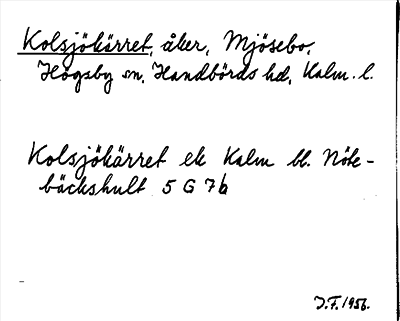 Kolsjökärret, åker, Mjösebo,
Högsby sn, Handbörds hd, Kalm. l.
Kolsjökärret ek Kalm bl. Nöte-
bäckshult 5 G 7b
J.F. 1956.